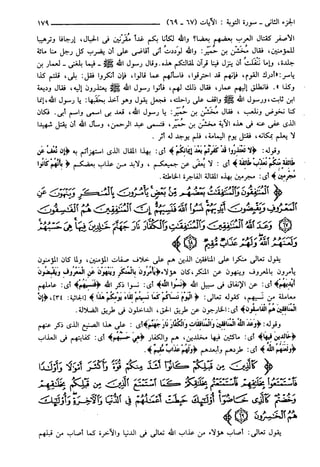 الجزء الثانى - سورة التوبة : الآيات (٦٧ – ٦٩) ١٧٩
الأصفر كقتال العرب بعضهم بعضا؟ والله لكأنا بكم غداً مُقرَّنين فى الحبال، إرجافا وترهيبا
للمؤمنين، فقال مُخَشّن بن حُمَيّر: والله لوددتُ أنى أقاضى على أن يضرب كل رجل منا مائة
جلدة، وإما نَنْفَلتُ أن ينزل فينا قرآن لمقالتكم هذه. وقال رسول الله ﷺ - فيما بلغنى - لعمار بن
ياسر: «أدرك القوم، فإنهم قد احترقوا، فاسألهم عما قالوا، فإن أنكروا فقل: بلى، قلتم كذا
وكذا». فانطلق إليهم عمار، فقال ذلك لهم، فأتوا رسول الله ﷺ يعتذرون إليه، فقال وديعة
ابن ثابت، ورسول الله ﷺ واقف على راحلته، فجعل يقول وهو آخذ بحقبها: يا رسول الله، إنما
كنا نخوض ونلعب ، فقال مخشن بن حُمَيّر: يا رسول الله، قعد بى اسمى واسم أبى. فكان
الذى عفى عنه فى هذه الآية مخشن بن حُمَيّر، فتسمى عبد الرحمن، وسأل الله أن يقتل شهيدا
لا يعلم بمكانه، فقتل يوم اليمامة، فلم يوجد له أثر .
وقوله: ﴿لا تَعْتَذِرُوا قَدْ كَفَرْتُم بَعْدَ إِيمَانِكُمْ﴾ أى: بهذا المقال الذى استهزأتم به ﴿إِن نَّعْفُ عَن
طَائِفَةٍ مِّنكُمْ نُعَذِّبْ طَائِفَةً﴾ أى: لا يُعفى عن جميعكم ، ولابد من عذاب بعضكم ﴿بِأَنَّهُمْ كَانُوا
مُجْرِمِينَ﴾ أى: مجرمين بهذه المقالة الفاجرة الخاطئة.
﴿الْمُنَافِقُونَ وَالْمُنَافِقَاتُ بَعْضُهُم مِّن بَعْضٍ يَأْمُرُونَ بِالْمُنكَرِ وَيَنْهَوْنَ عَنِ
الْمَعْرُوفِ وَيَقْبِضُونَ أَيْدِيَهُمْ نَسُوا اللَّهَ فَنَسِيَهُمْ إِنَّ الْمُنَافِقِينَ هُمُ الْفَاسِقُونَ
﴿٦٧﴾ وَعَدَ اللَّهُ الْمُنَافِقِينَ وَالْمُنَافِقَاتِ وَالْكُفَّارَ نَارَ جَهَنَّمَ خَالِدِينَ فِيهَا هِيَ حَسْبُهُمْ
وَلَعَنَهُمُ اللَّهُ وَلَهُمْ عَذَابٌ مُّقِيمٌ ﴿٦٨﴾
يقول تعالى منكرا على المنافقين الذين هم على خلاف صفات المؤمنين، ولما كان المؤمنون
يأمرون بالمعروف وينهون عن المنكر، كان هؤلاء ﴿يَأْمُرُونَ بِالْمُنكَرِ وَيَنْهَوْنَ عَنِ الْمَعْرُوفِ وَيَقْبِضُونَ
أَيْدِيَهُمْ﴾ أى: عن الإنفاق فى سبيل الله ﴿نَسُوا اللَّهَ﴾ أى: نسوا ذكر الله ﴿فَنَسِيَهُمْ﴾ أى: عاملهم
معاملة من نسيهم، كقوله تعالى: ﴿الْيَوْمَ نَنسَاكُمْ كَمَا نَسِيتُمْ لِقَاءَ يَوْمِكُمْ هَذَا﴾ [الجاثية: ٣٤]، ﴿إِنَّ
الْمُنَافِقِينَ هُمُ الْفَاسِقُونَ﴾ أى: الخارجون عن طريق الحق، الداخلون فى طريق الضلالة.
وقوله: ﴿وَعَدَ اللَّهُ الْمُنَافِقِينَ وَالْمُنَافِقَاتِ وَالْكُفَّارَ نَارَ جَهَنَّمَ﴾ أى: على هذا الصنيع الذى ذكر عنهم
﴿خَالِدِينَ فِيهَا﴾ أى: ماكثين فيها مخلدين، هم والكفار ﴿هِيَ حَسْبُهُمْ﴾ أى: كفايتهم فى العذاب
﴿وَلَعَنَهُمُ اللَّهُ﴾ أى: طردهم وأبعدهم ﴿وَلَهُمْ عَذَابٌ مُّقِيمٌ﴾ .
﴿كَالَّذِينَ مِن قَبْلِكُمْ كَانُوا أَشَدَّ مِنكُمْ قُوَّةً وَأَكْثَرَ أَمْوَالًا وَأَوْلَادًا
فَاسْتَمْتَعُوا بِخَلَاقِهِمْ فَاسْتَمْتَعْتُم بِخَلَاقِكُمْ كَمَا اسْتَمْتَعَ الَّذِينَ مِن قَبْلِكُم
بِخَلَاقِهِمْ وَخُضْتُمْ كَالَّذِي خَاضُوا أُولَئِكَ حَبِطَتْ أَعْمَالُهُمْ فِي الدُّنْيَا وَالْآخِرَةِ وَأُولَئِكَ
هُمُ الْخَاسِرُونَ ﴿٦٩﴾
يقول تعالى: أصاب هؤلاء من عذاب الله تعالى فى الدنيا والآخرة كما أصاب من قبلهم